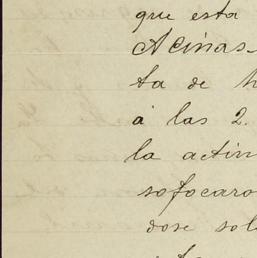 que esta
Acinas-
ta de h
á las 2.
la actin
sofocaro
dose sol